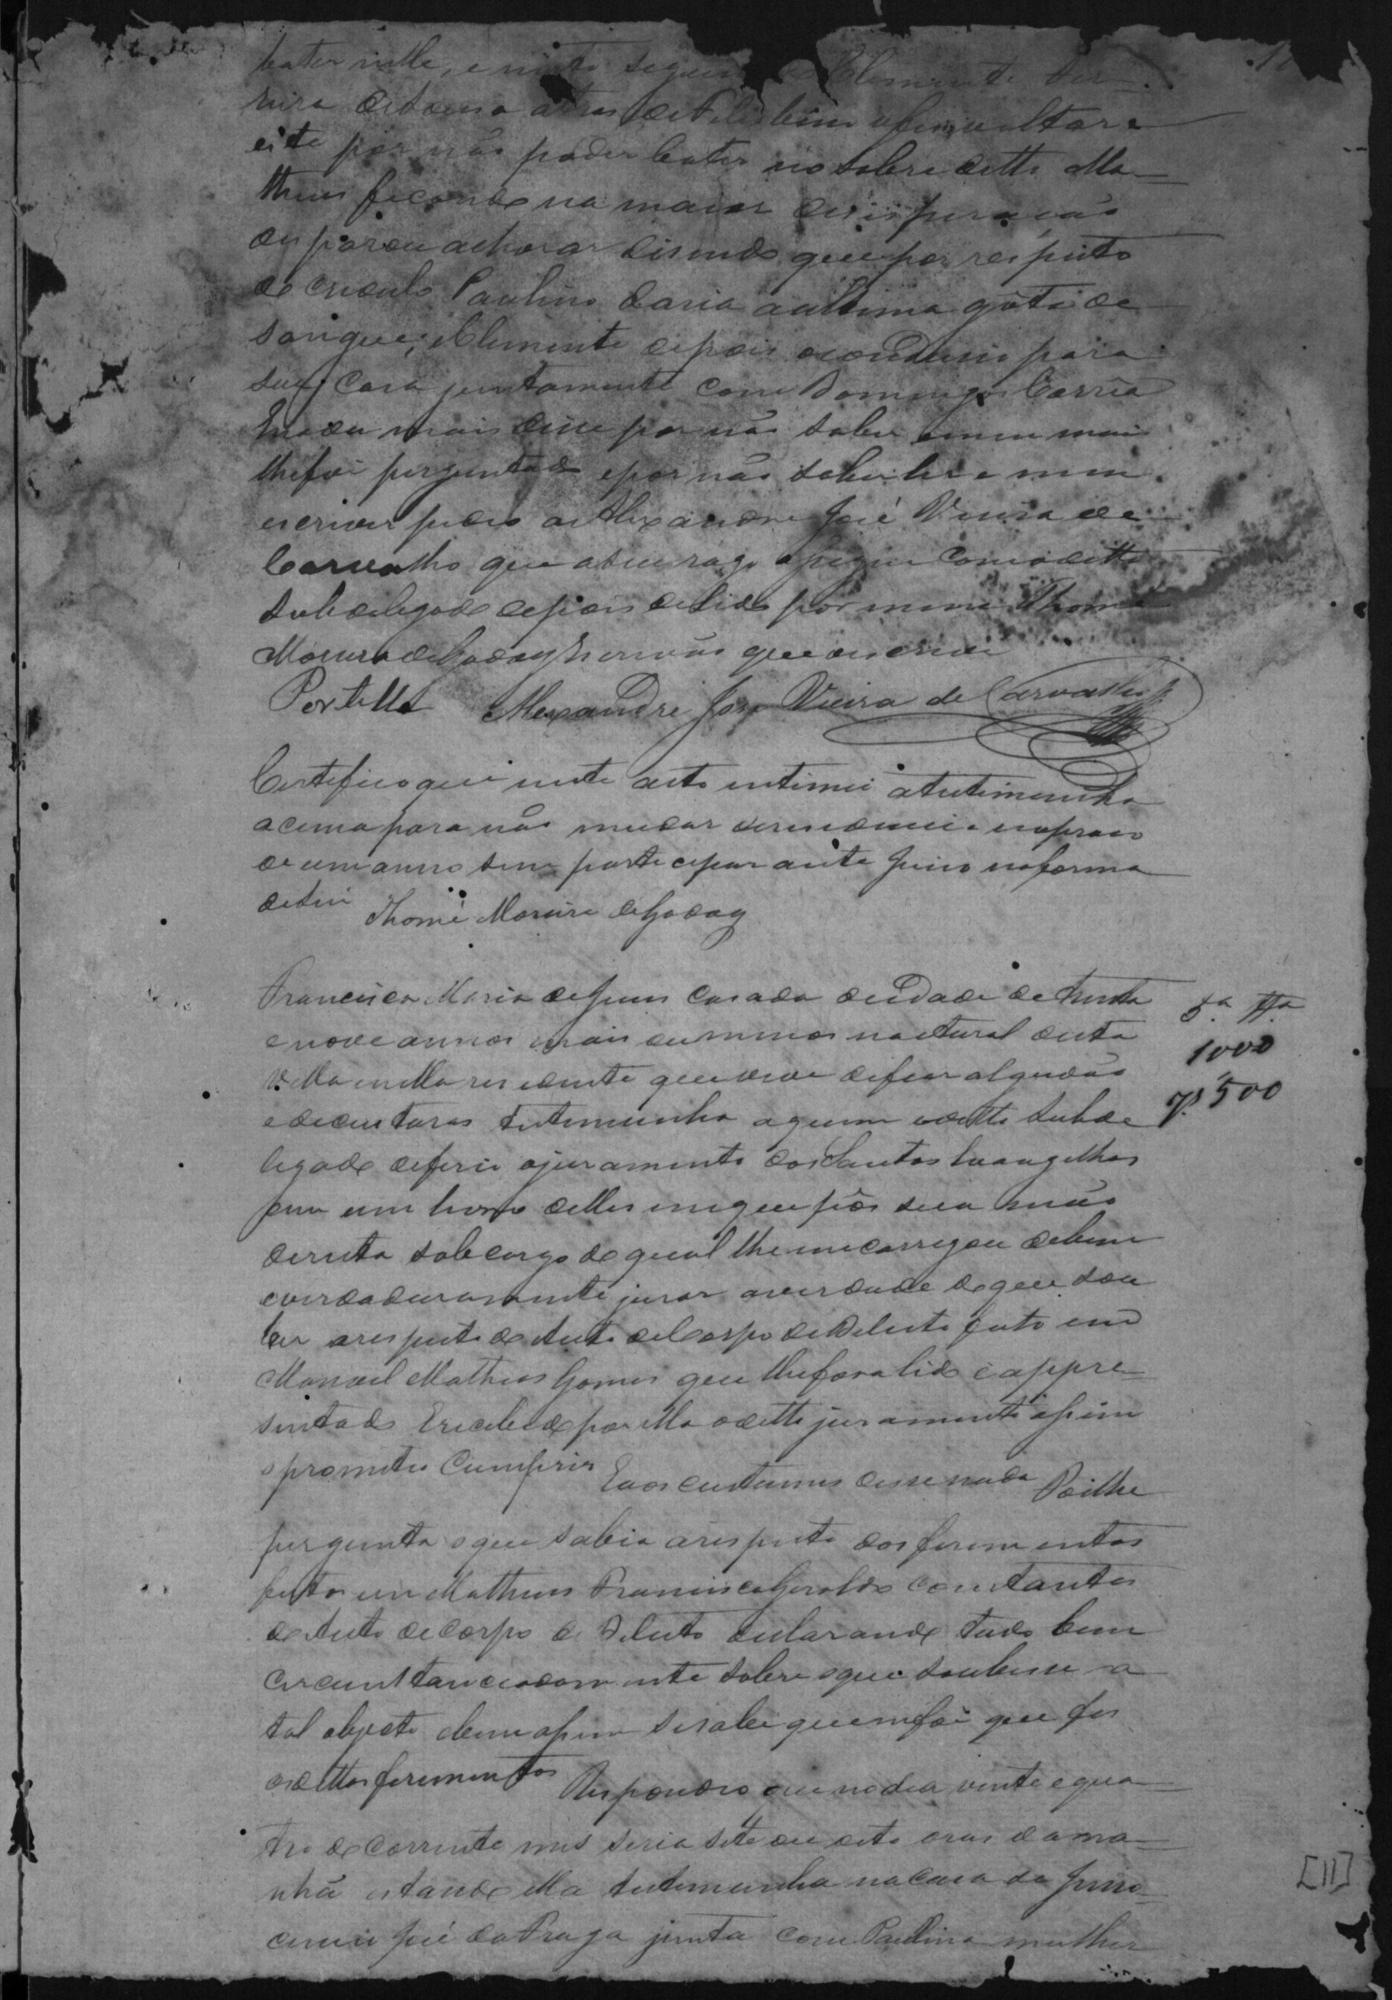 bater nelle, e nisto seguio Clemente Fer-
reira
este por não poder bater no sobre ditto Ma-
theus ficando na maior desisperacão
disparou achorar disendo que por respeito
do crioulo Paulino daria aultima gota de
sangue; Clemente depois oconduzio para
sua casa juntamente com Domingos Corrêa
Enada mais disse por não saber enem mais
lhefoi perguntado epor não saber ler e nem
escriver pedio a Alexandre José Vieira de
Carvalho que aseu rogo assignasse com oditto
Subdelegado depois delido por mim Thome
Moreira deGodoy Escrivão que escrivi
Portella Alexandre Jose Vieira de Carvalho
Certifico que neste acto intimei atestimunha
acima para não mudar deresidencia noprazo
de um anno sem participar aeste Juiso naforma
delei Thomé Moreira deGodoy
Francisca Maria deJesus casada deidade de trinta
enove annos mais oumenos natural desta
Villa enella residente que vive defiar algudão
5.ª Ttª
1000
500
edecusturas testimunha aquem oditto Subde
legado deferio ojuramento dosSantos Evangelhos
em um livro delles emque pôs sua mão
dereita sobcargo doqual lhe emcarregou debem
everdadeiramente jurar averdade doque sou
ber arespeito doAuto deCorpo deDelicto feito em
Manoel Matheus Gomes que lhefora lido e appre
sentado Erecebido por ella oditto juramento assim
o prometeo Cumprir Eaos custumes disse nada Foilhe
pergunta oque sabia arespeito dos ferimentos
feitos em Matheus Francisco Geraldo constantes
doAuto deCorpo de Delicto declarando tudo bem
circunstanciadamente sobre oque soubesse a
tal objecto bem assim se sabe quem foi que fes
osdittos ferimentos Respondeo que nodia vinte equa-
tro docorrente mes seria sete ou oito oras dama-
nhã estando ella testimunha nacasa de Inno-
cencio José daFraga junta com Paulina mulher
[11]